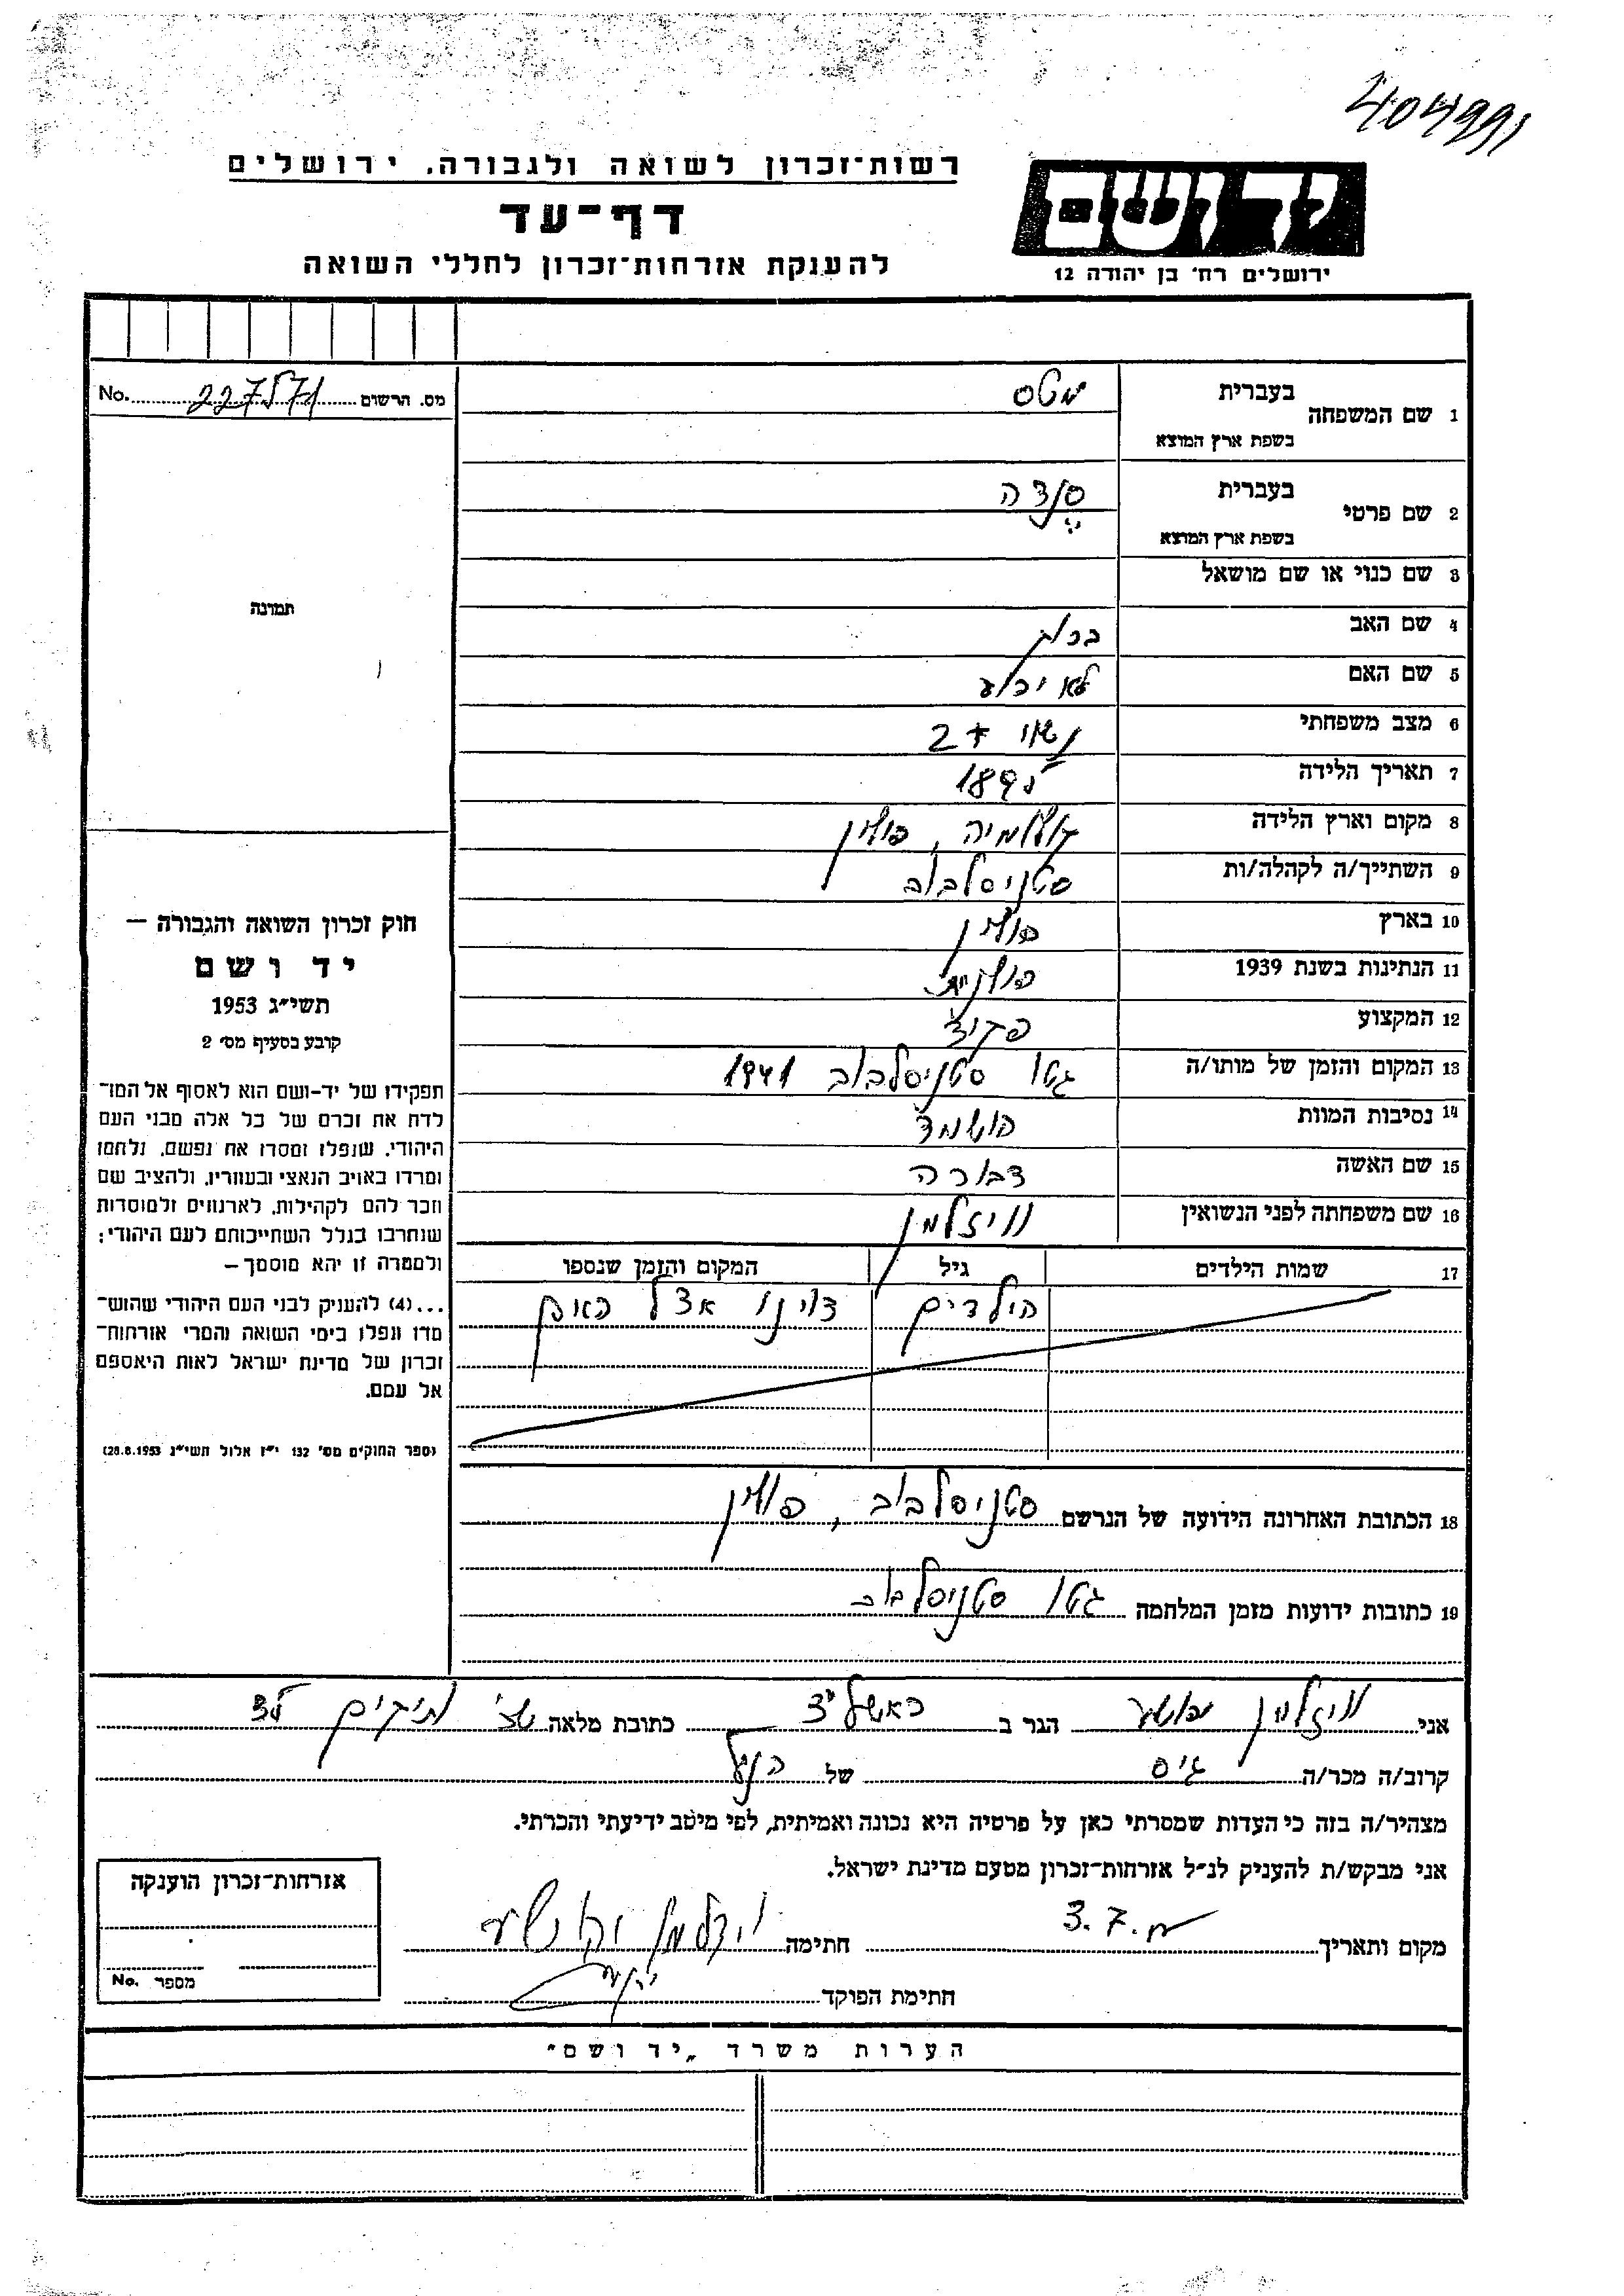 404991
רשות־זכרון לשואה ולגבורה. ירושלים
יד ושם
דף־עד
ירושלים רח׳ בן יהודה 12
להענקת אזרחות־זכרון לחללי השואה
No. מס. הרשום
1 שם המשפחה בעברית מטס
בשפת ארץ המוצא
2 שם פרטי בעברית
בשפת ארץ המוצא
3 שם כנוי או שם מושאל
4 שם האב ברוך
5 שם האם לא ידוע
6 מצב משפחתי נשוי + 2
7 תאריך הלידה 189
8 מקום וארץ הלידה פולין
9 השתייך/ה לקהלה/ות סטניסלבוב
10 בארץ פולין
11 הנתינות בשנת 1939 פולנית
12 המקצוע פקיד
13 המקום והזמן של מותו/ה גטו סטניסלבוב 1941
14 נסיבות המוות הושמד
15 שם האשה דבורה
16 שם משפחתה לפני הנשואין וויזלמן
17 שמות הילדים גיל המקום והזמן שנספו
הילדים אצל האם
18 הכתובת האחרונה הידועה של הנרשם סטניסלבוב, פולין
19 כתובות ידועות מזמן המלחמה גטו סטניסלבוב
תמונה
חוק זכרון השואה והגבורה —
יד ושם
תשי״ג 1953
קובע בסעיף מס׳ 2
תפקידו של יד-ושם הוא לאסוף אל המו־
לדת את זכרם של כל אלה מבני העם
היהודי, שנפלו ומסרו את נפשם, נלחמו
ומרדו באויב הנאצי ובעוזריו, ולהציב שם
וזכר להם לקהילות, לארגונים ולמוסדות
שנחרבו בגלל השתייכותם לעם היהודי;
ולמטרה זו יהא מוסמך —
...(4) להעניק לבני העם היהודי שהוש־
מדו ונפלו בימי השואה והמרי אזרחות־
זכרון של מדינת ישראל לאות היאספם
אל עמם.
(ספר החוקים מס׳ 132 י״ז אלול תשי״ג 28.8.1953)
אני וויזלמן יהושע הגר ב כתובת מלאה
קרוב/ה מכר/ה גיס של הנ״ל
מצהיר/ה בזה כי העדות שמסרתי כאן על פרטיה היא נכונה ואמיתית, לפי מיטב ידיעתי והכרתי.
אני מבקש/ת להעניק לנ״ל אזרחות־זכרון מטעם מדינת ישראל.
מקום ותאריך 3.7 חתימה
חתימת הפוקד
אזרחות־זכרון הוענקה
מספר No.
הערות משרד „יד ושם״